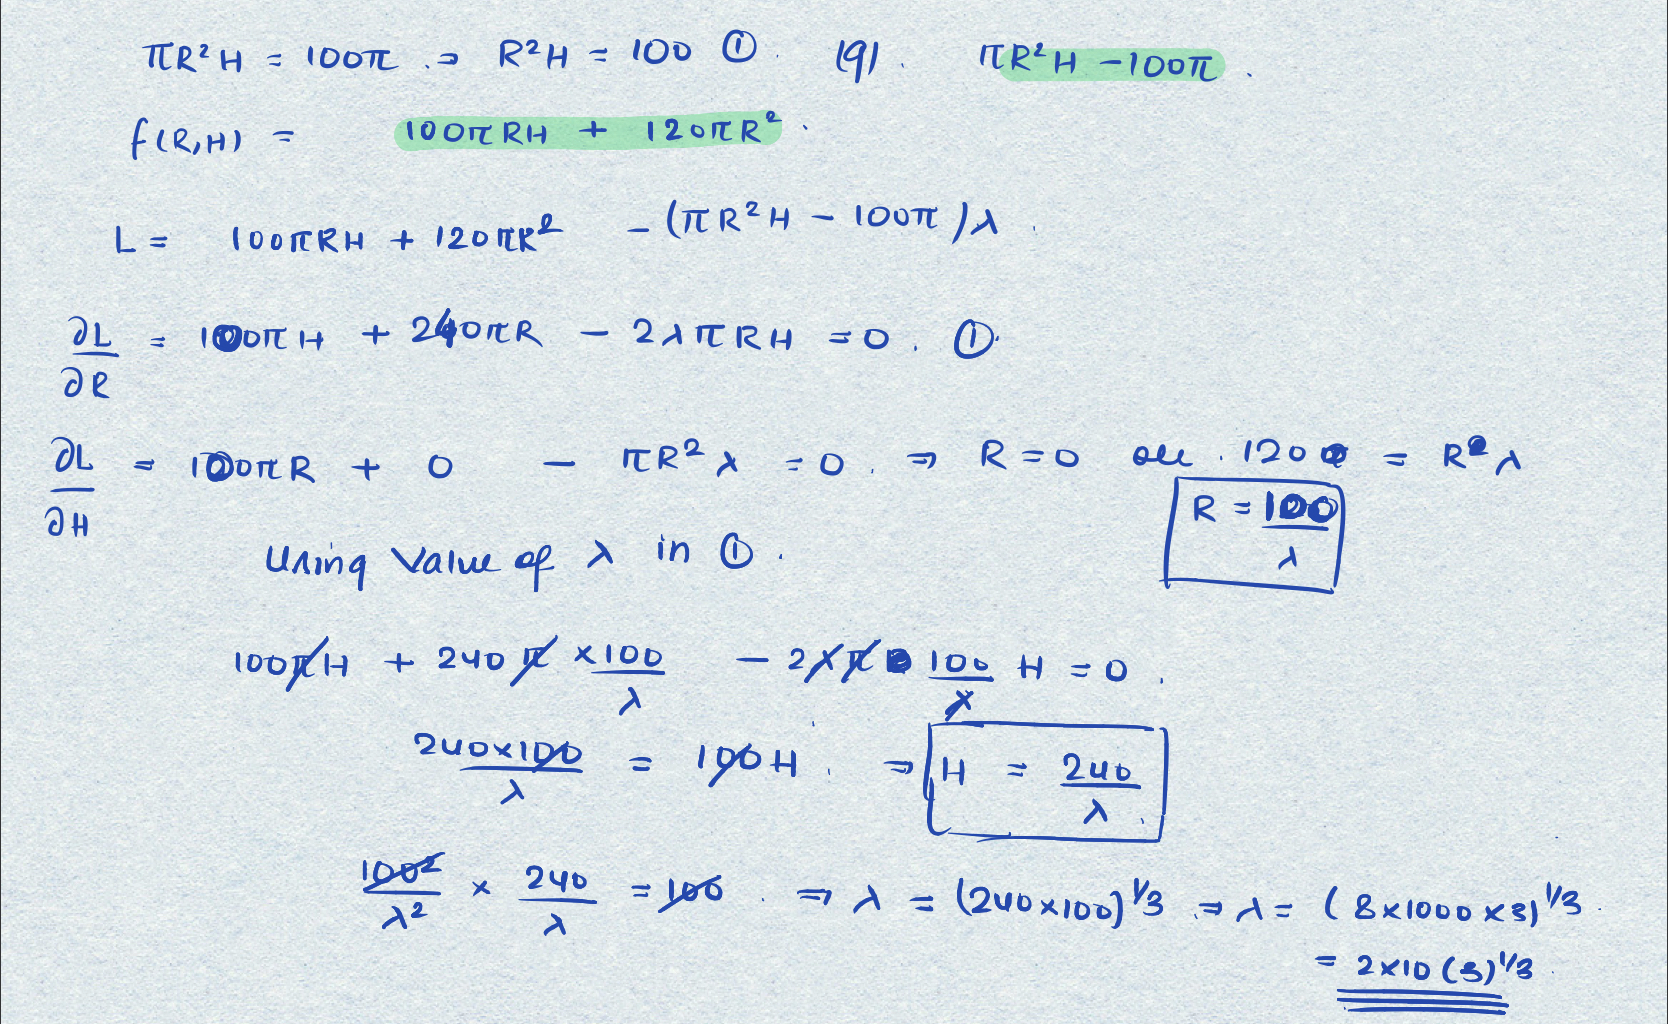 πR²H = 100π . ⇒ R²H = 100 ① . (9) . πR²H - 100π .
f(R,H) = 100πRH + 120πR² .
L = 100πRH + 120πR² - (πR²H - 100π)λ .
∂L/∂R = 100πH + 240πR - 2λπRH = 0 . ①
∂L/∂H = 100πR + 0 - πR²λ = 0 . ⇒ R = 0 or 120 = Rλ
R = 100/λ
Using Value of λ in ① .
100πH + 240π × 100/λ - 2λπ 100/λ H = 0 .
240×100/λ = 100H . ⇒ H = 240/λ
100²/λ² × 240/λ = 100 . ⇒ λ = (240×100)^1/3 ⇒ λ = (8×1000×3)^1/3 .
= 2×10(3)^1/3